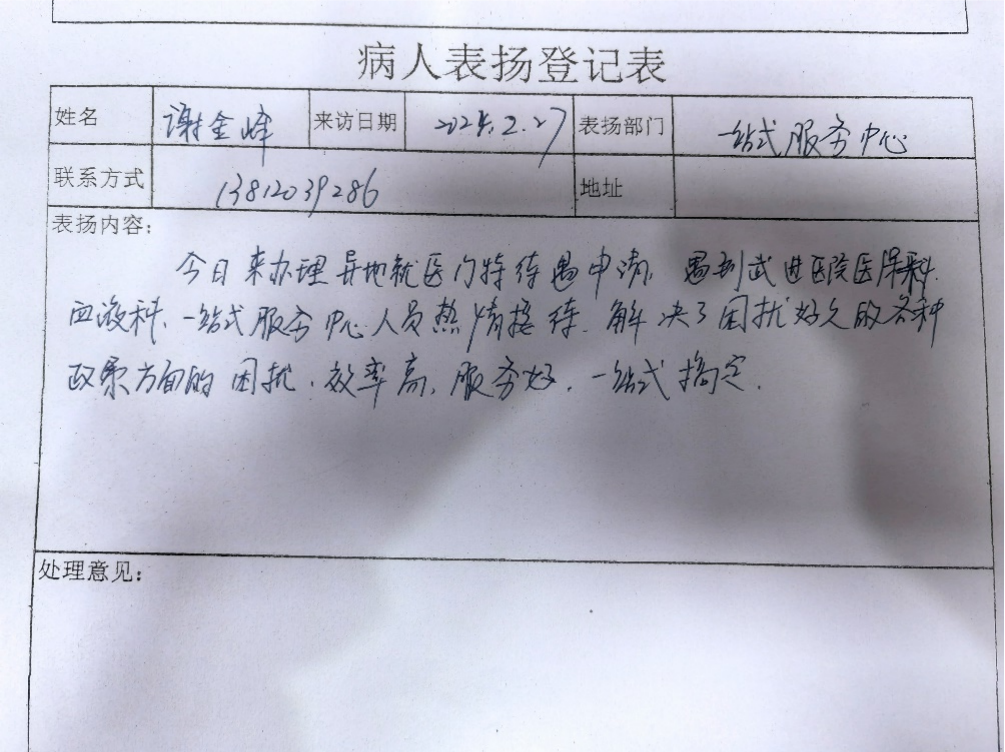 病人表扬登记表
姓名 谢金峰 来访日期 2024.2.27 表扬部门 一站式服务中心
联系方式 13812039286 地址
表扬内容：
今日来办理异地就医门特待遇申请，遇到武进医院医保科、
血液科、一站式服务中心人员热情接待、解决了困扰好久的各种
政策方面的困扰、效率高，服务好，一站式搞定.
处理意见：